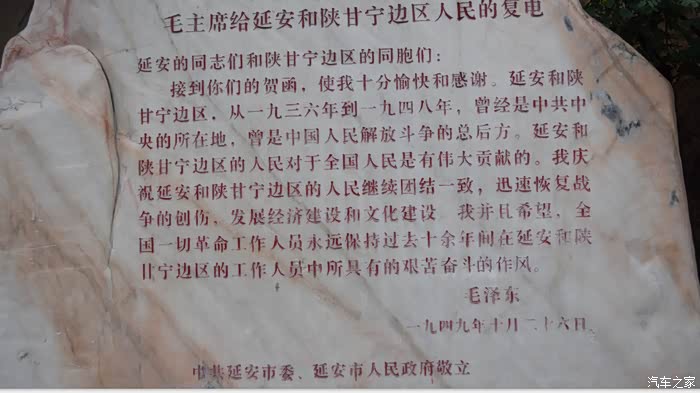 毛主席给延安和陕甘宁边区人民的复电
延安的同志们和陕甘宁边区的同胞们：
接到你们的贺函，使我十分愉快和感谢。延安和陕
甘宁边区，从一九三六年到一九四八年，曾经是中共中
央的所在地，曾是中国人民解放斗争的总后方。延安和
陕甘宁边区的人民对于全国人民是有伟大贡献的。我庆
祝延安和陕甘宁边区的人民继续团结一致，迅速恢复战
争的创伤，发展经济建设和文化建设 我并且希望，全
国一切革命工作人员永远保持过去十余年间在延安和陕
甘宁边区的工作人员中所具有的艰苦奋斗的作风。
毛泽东
一九四九年十月二十六日。
中共延安市委、延安市人民政府敬立
汽车之家